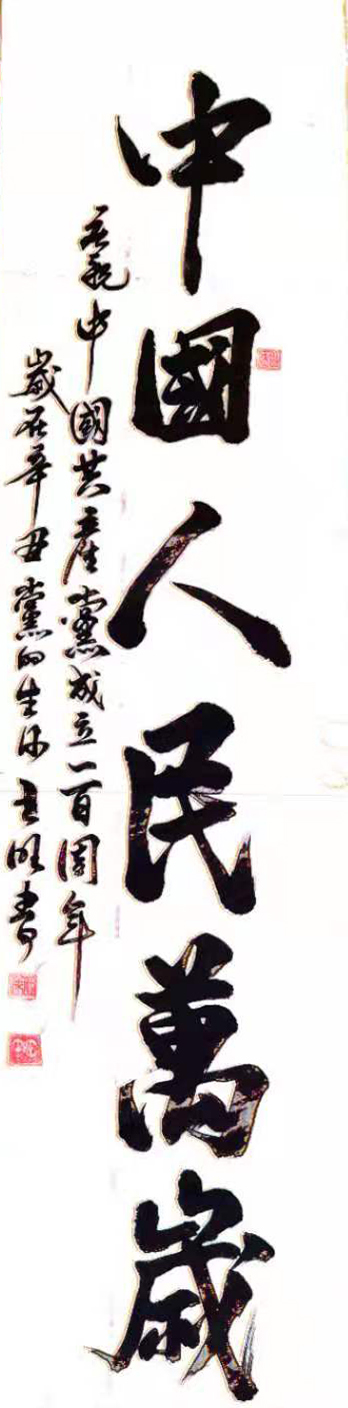 中國人民萬歲
慶祝中國共產黨成立一百周年
歲在辛丑黨的生日
書